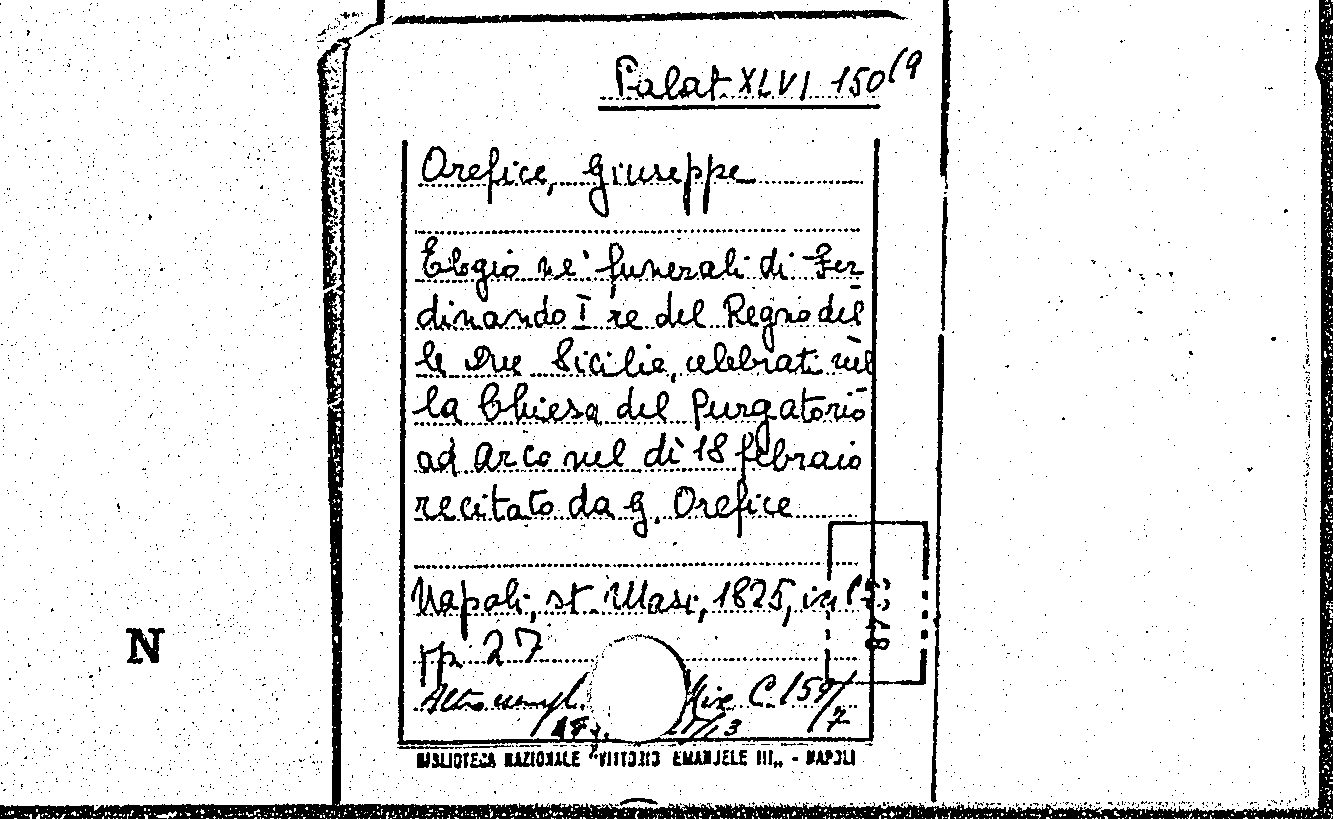 Palat. XLVI 150(9
Orefice, Giuseppe
Elogio ne' funerali di Fer
dinando I re del Regno del
le Due Sicilie, celebrati nel
la Chiesa del Purgatorio
ad Arco nel dì 18 febraio
recitato da G. Orefice
Napoli, st. Masi, 1825, in
pp. 27
Altro esempl. Misc. C. 159/
7
N
BIBLIOTECA NAZIONALE "VITTORIO EMANUELE III" - NAPOLI